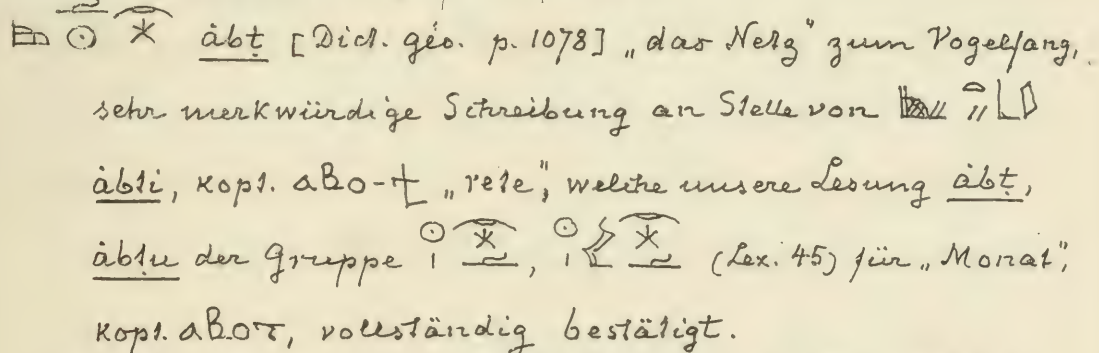 ȧbṭ [Dict. géo. p. 1078] „das Netz" zum Vogelfang,
sehr merkwürdige Schreibung an Stelle von
ȧbti, kopt. ⲁⲃⲟ-ϯ „rete", welche unsere Lesung ȧbṭ,
ȧbṭu der Gruppe , (Lex. 45) für „Monat",
kopt. ⲁⲃⲟⲧ, vollständig bestätigt.